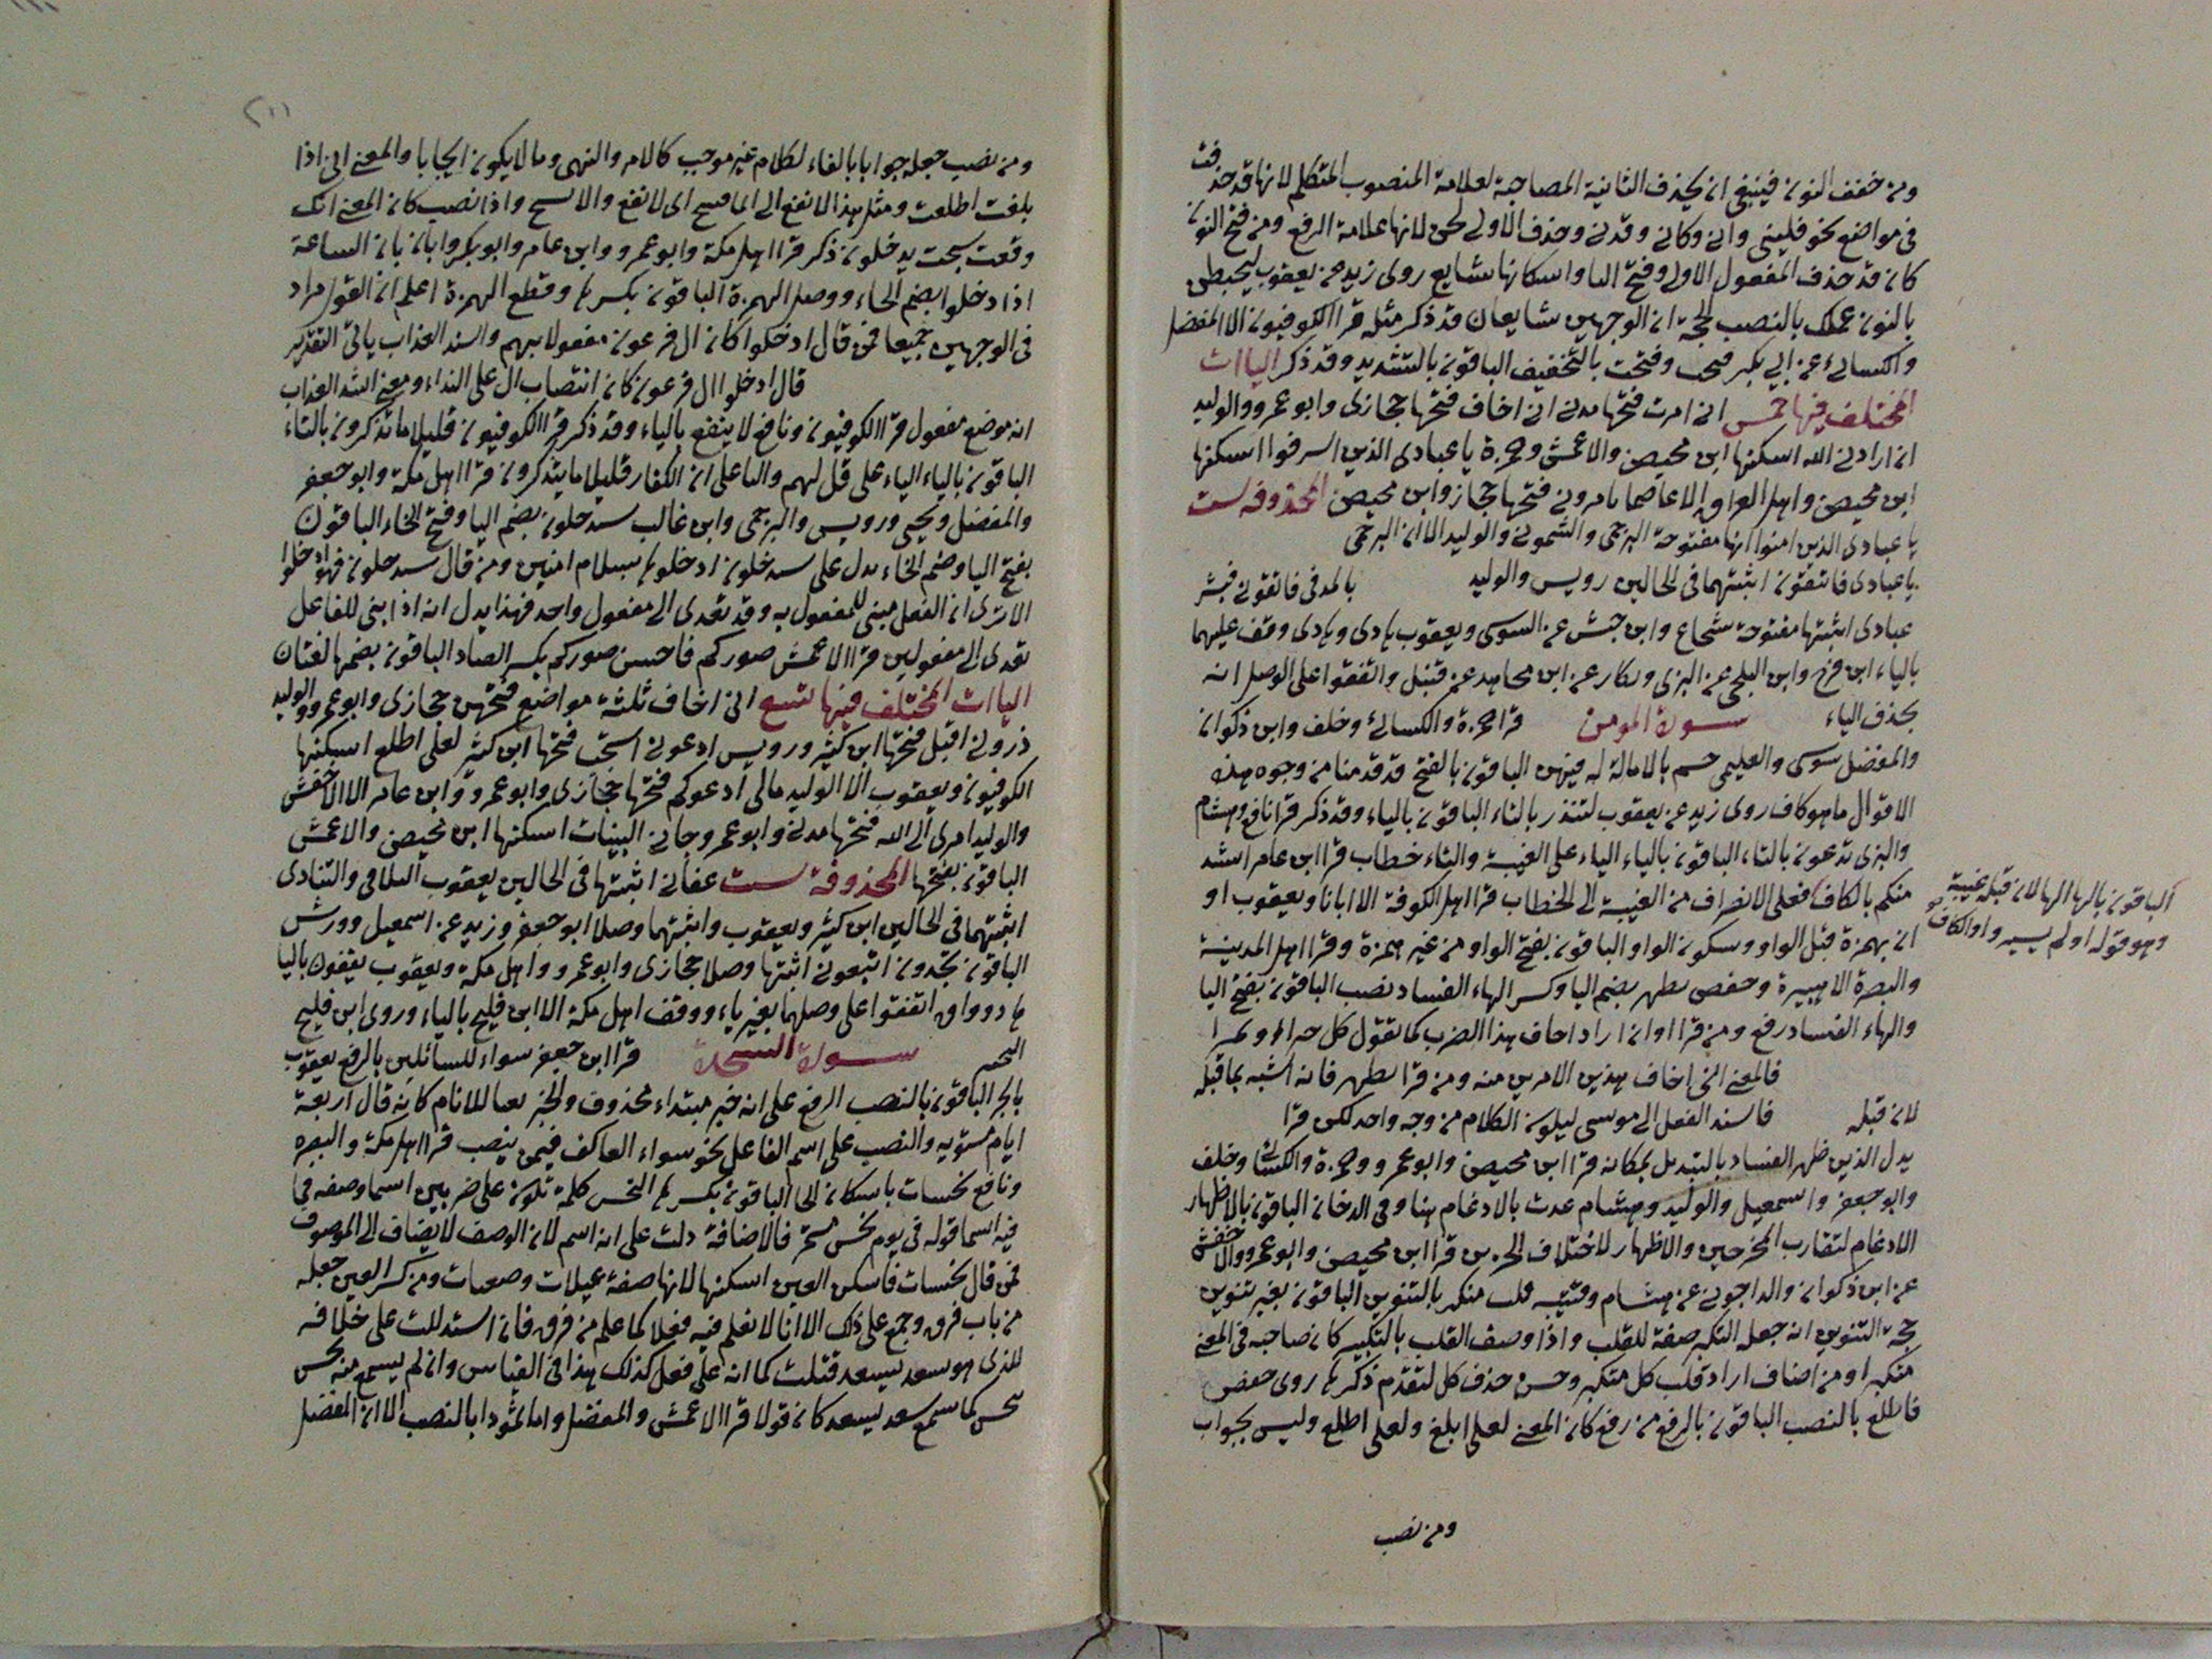 ومن خفف النون فينبغي ان يحذف الثانية المصاحبة لعلامة المنصوب المتكلم لانها قد حذفت
في مواضع نحو فليني واني وكاني وقدني وحذف الاولى لحن لانها علامة الرفع ومن فتح النون
كان قد حذف المفعول الاول وفتح اليا واسكانها سايغ روى زيد عن يعقوب ليحبطن
بالنون عملك بالنصب الحجة ان الوجهين شايعان قد ذكر مثله قرا الكوفيون الا المفضل
والكسائي عن ابي بكر فتحت وفتحت بالتخفيف الباقون بالتشديد وقد ذكر الياات
المختلف فيها خمس اني امرت فتحها مدني اني اخاف فتحها حجازى وابو عمرو والوليد
ان ارادني الله اسكنها ابن محيصن والاعمش وحمزة يا عبادى الذين اسرفوا اسكنها
ابن محيصن واهل العراق الا عاصما تامروني فتحها حجاز وابن محيصن المحذوفه ست
يا عبادى الذين امنوا انها مفتوحة البرجمى والشموني والوليد الا ان البرجمى
يا عبادى فاتقون اثبتهما فى الحالين رويس والوليد بالمد فى فاتقوني فبشر
عبادى اثبتها مفتوحة شجاع وابن حبش عن السوسى ويعقوب هادى وهادى وقف عليهما
بالياء ابن فرح وابن البلخى عن البزى وبكار عن ابن مجاهد عن قنبل واتفقوا على الوصل انه
بحذف الياء سورة المومن قرا حمزة والكسائي وخلف وابن ذكوان
والمفضل سوسى والعليمى حم بالامالة له فيهن الباقون بالفتح قد قدمنا من وجوه هذه
الاقوال ما هو كاف روى زيد عن يعقوب لتنذر بالتاء الباقون بالياء وقد ذكر قرا نافع وهشام
والبزى تدعون بالتاء الباقون بالياء الياء على الغيبة والتاء خطاب قرا ابن عامر اشد
منكم بالكاف فعلى الانصراف من الغيبة الى الخطاب قرا اهل الكوفة الا ابانا ويعقوب او
الباقون بالها الها لان قبله غيبة
وهو قوله او لم يسيروا والكاف
ان بهمزة قبل الواو وسكون الواو الباقون بفتح الواو من غير همزة وقرا اهل المدينة
والبصرة الا هبيرة وحفص يظهر بضم اليا وكسر الهاء الفساد نصب الباقون بفتح اليا
والهاء الفساد رفع ومن قرا او ان اراد اخاف هذا الضرب كما تقول كل
فالمعنى اني اخاف هذين الامرين منه ومن قرا يظهر فانه اشبه بما قبله
لان قبله يبدل فاسند الفعل الى موسى ليكون الكلام من وجه واحد لكن قرا
يدل الذين ظهر الفساد بالتبديل بمكانه قرا ابن محيصن وابو عمرو وحمزة والكسائي وخلف
وابو جعفر واسمعيل والوليد وهشام عدت بالادغام هنا وفى الدخان الباقون بالاظهار
الادغام لتقارب المخرجين والاظهار لاختلاف الحرفين قرا ابن محيصن وابو عمرو والاخفش
عن ابن ذكوان والداجوني عن هشام وقتيبه قلب متكبر بالتنوين الباقون بغير تنوين
حجة التنوين انه جعل التكبر صفة للقلب واذا وصف القلب بالتكبر كان صاحبه فى المعنى
متكبرا ومن اضاف اراد قلب كل متكبر وحسن حذف كل لتقدم ذكرها روى حفص
فاطلع بالنصب الباقون بالرفع من رفع كان المعنى لعلى ابلغ ولعلى اطلع وليس بجواب
ومن نصب
ومن نصب جعله جوابا بالفاء لكلام غير موجب كالامر والنهى وما لا يكون ايجابا والمعنى اني اذا
بلغت اطلعت ومثل هذا لا تقع الى الما فتسبح اى لا تقع والا تسبح واذا نصب كان المعنى انك
وقعت سبحت يدخلون ذكر قرا اهل مكة وابو عمرو وابن عامر وابو بكر وابان بان الساعة
اذا دخلوا بضم الخاء ووصل الهمزة الباقون بكسرها وقطع الهمزة اعلم ان القول مراد
فى الوجهين جميعا فمن قال ادخلوا كان ال فرعون مفعولا بهم واشد العذاب ياتى التقدير
قال ادخلوا ال فرعون كان انتصاب ال على النداء ومعنى اشد العذاب
انه موضع مفعول قرا الكوفيون ونافع لا ينفع بالياء وقد ذكر قرا الكوفيون قليلا ما تتذكرون بالتاء
الباقون بالياء الياء على قل لهم والتا على ان الكفار قليلا ما يتذكرون قرا اهل مكة وابو جعفر
والمفضل ويحيى ورويس والبرجمى وابن غالب سيدخلون بضم اليا وفتح الخاء الباقون
بفتح اليا وضم الخاء يدل على سيدخلون ادخلوها بسلام امنين ومن قال سيدخلون فهو ادخلوا
الا ترى ان الفعل مبنى للمفعول به وقد تعدى الى مفعول واحد فهذا يدل انه اذا بنى للفاعل
تعدى الى مفعولين قرا الاعمش صوركم فاحسن صوركم بكسر الصاد الباقون بضمها لغتان
الياات المختلف فيها تسع اني اخاف ثلثة مواضع فتحهن حجازى وابو عمرو والوليد
ذروني اقتل فتحها ابن كثير ورويس ادعوني استجب فتحها ابن كثير لعلى اطلع اسكنها
الكوفيون ويعقوب الا الوليد مالى ادعوكم فتحها حجازى وابو عمرو وابن عامر الا الاخفش
والوليد امرى الى الله فتحها مدني وابو عمرو جاني البينات اسكنها ابن محيصن والاعمش
الباقون بفتحها المحذوفة ست عقابى اثبتها فى الحالين يعقوب التلاقى والتنادى
اثبتهما فى الحالين ابن كثير ويعقوب واثبتهما وصلا ابو جعفر وزيد عن اسمعيل وورش
الباقون بحذفهن اتبعوني اثبتها وصلا حجازى وابو عمرو واهل مكة ويعقوب يقفون باليا
هاد وواق اتفقوا على وصلهما بغير ياء ووقف اهل مكة الا ابن فليح بالياء وروى ابن فليح
سورة السجدة قرا ابن جعفر سواء للسائلين بالرفع يعقوب
بالجر الباقون بالنصب الرفع على انه خبر مبتداء محذوف والخبر كانه قال اربعة
ايام مستويه والنصب على اسم الفاعل نحو سواء العاكف فيمن ينصب قرا اهل مكة والبصره
ونافع نحسات باسكان الحا الباقون بكسرها النحس كلمة تكون على ضربين اسما وصفه فما
فيه اسما قوله فى يوم نحس مستمر فالاضافة دلت على انه اسم لان الوصف لا يضاف الى الموصوف
فمن قال نحسات فاسكن العين اسكنها لانها صفة عبلات وصعبات ومن كسر العين جعله
من باب فرق وجمع على ذلك الا انا لا نعلم فيه فعلا كما علم من فرق فان استدللت على خلافه
الذى هو سعد يسعد قتلت كما انه على فعل كذلك هذا فى القياس وان لم يسمع منه نحس
نحس كما سمع سعد يسعد كان قولا قرا الاعمش والمفضل واما ثمودا بالنصب الا ان المفضل